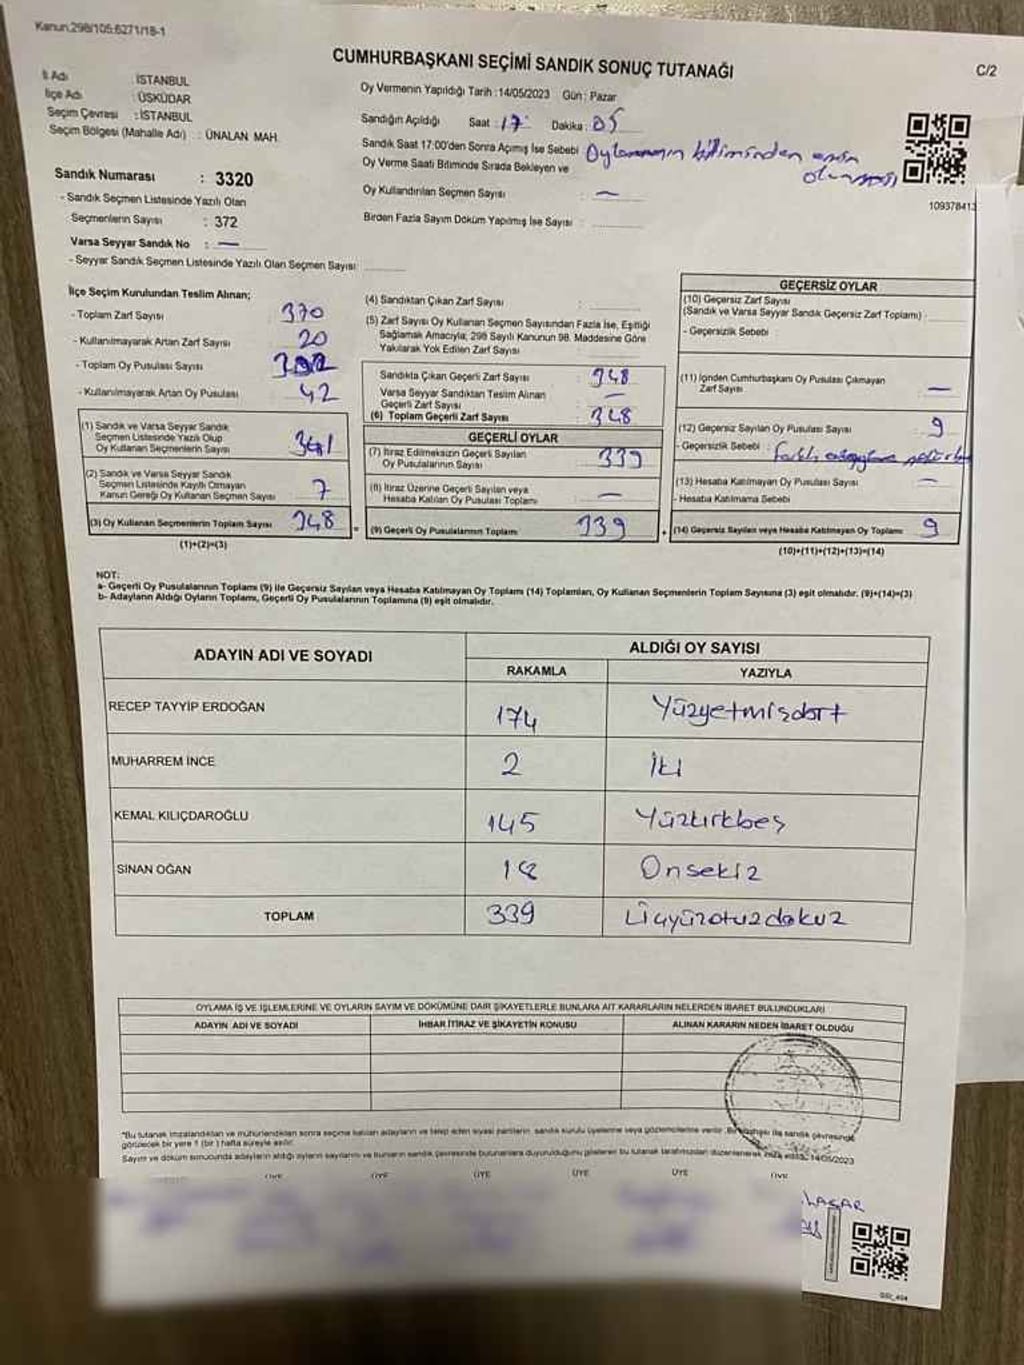 Kanun:298/105:6271/18-1
CUMHURBAŞKANI SEÇİMİ SANDIK SONUÇ TUTANAĞI
C/2
İl Adı : İSTANBUL
İlçe Adı : ÜSKÜDAR
Seçim Çevresi : İSTANBUL
Seçim Bölgesi (Mahalle Adı) : ÜNALAN MAH.
Sandık Numarası : 3320
- Sandık Seçmen Listesinde Yazılı Olan
Seçmenlerin Sayısı : 372
Varsa Seyyar Sandık No : —
- Seyyar Sandık Seçmen Listesinde Yazılı Olan Seçmen Sayısı:
Oy Vermenin Yapıldığı Tarih :14/05/2023 Gün : Pazar
Sandığın Açıldığı Saat : 17 Dakika : 05
Sandık Saat 17:00'den Sonra Açımış İse Sebebi : Oylamanın bitiminden
Oy Verme Saati Bitiminde Sırada Bekleyen ve
Oy Kullandırılan Seçmen Sayısı : —
Birden Fazla Sayım Döküm Yapılmış İse Sayısı :
109378413
İlçe Seçim Kurulundan Teslim Alınan;
- Toplam Zarf Sayısı 370
- Kullanılmayarak Artan Zarf Sayısı 20
- Toplam Oy Pusulası Sayısı
- Kullanılmayarak Artan Oy Pusulası 42
(1) Sandık ve Varsa Seyyar Sandık
Seçmen Listesinde Yazılı Olup
Oy Kullanan Seçmenlerin Sayısı 341
(2) Sandık ve Varsa Seyyar Sandık
Seçmen Listesinde Kayıtlı Olmayan
Kanun Gereği Oy Kullanan Seçmen Sayısı 7
(3) Oy Kullanan Seçmenlerin Toplam Sayısı 348
(1)+(2)=(3)
(4) Sandıktan Çıkan Zarf Sayısı :
(5) Zarf Sayısı Oy Kullanan Seçmen Sayısından Fazla İse, Eşitliği
Sağlamak Amacıyla; 298 Sayılı Kanunun 98. Maddesine Göre
Yakılarak Yok Edilen Zarf Sayısı :
Sandıkta Çıkan Geçerli Zarf Sayısı 348
Varsa Seyyar Sandıktan Teslim Alınan
Geçerli Zarf Sayısı —
(6) Toplam Geçerli Zarf Sayısı 348
GEÇERLİ OYLAR
(7) İtiraz Edilmeksizin Geçerli Sayılan
Oy Pusulalarının Sayısı 339
(8) İtiraz Üzerine Geçerli Sayılan veya
Hesaba Katılan Oy Pusulası Toplamı —
= (9) Geçerli Oy Pusulalarının Toplamı 339
GEÇERSİZ OYLAR
(10) Geçersiz Zarf Sayısı
(Sandık ve Varsa Seyyar Sandık Geçersiz Zarf Toplamı) .
- Geçersizlik Sebebi :
(11) İçinden Cumhurbaşkanı Oy Pusulası Çıkmayan
Zarf Sayısı —
(12) Geçersiz Sayılan Oy Pusulası Sayısı 9
- Geçersizlik Sebebi :
(13) Hesaba Katılmayan Oy Pusulası Sayısı —
- Hesaba Katılmama Sebebi
+ (14) Geçersiz Sayılan veya Hesaba Katılmayan Oy Toplamı 9
(10)+(11)+(12)+(13)=(14)
NOT:
a- Geçerli Oy Pusulalarının Toplamı (9) ile Geçersiz Sayılan veya Hesaba Katılmayan Oy Toplamı (14) Toplamları, Oy Kullanan Seçmenlerin Toplam Sayısına (3) eşit olmalıdır. (9)+(14)=(3)
b- Adayların Aldığı Oyların Toplamı, Geçerli Oy Pusulalarının Toplamına (9) eşit olmalıdır.
ADAYIN ADI VE SOYADI
ALDIĞI OY SAYISI
RAKAMLA YAZIYLA
RECEP TAYYİP ERDOĞAN 174 Yüzyetmişdört
MUHARREM İNCE 2 İki
KEMAL KILIÇDAROĞLU 145 Yüzkırkbeş
SİNAN OĞAN 18 Onsekiz
TOPLAM 339 Üçyüzotuzdokuz
OYLAMA İŞ VE İŞLEMLERİNE VE OYLARIN SAYIM VE DÖKÜMÜNE DAİR ŞİKAYETLERLE BUNLARA AİT KARARLARIN NELERDEN İBARET BULUNDUKLARI
ADAYIN ADI VE SOYADI İHBAR İTİRAZ VE ŞİKAYETİN KONUSU ALINAN KARARIN NEDEN İBARET OLDUĞU
*Bu tutanak imzalandıktan ve mühürlendikten sonra seçime katılan adayların ve talep eden siyasi partilerin sandık kurulu üyelerine veya gözlemcilerine verilir.
görülecek bir yere 1 (bir) hafta süreyle asılır.
Sayım ve döküm sonucunda adayların aldığı oyların sayılarını ve bunların sandık çevresinde bulunanlara duyurulduğunu gösteren bu tutanak tarafımızdan düzenlenerek 14/05/2023
ÜYE ÜYE ÜYE ÜYE ÜYE ÜYE